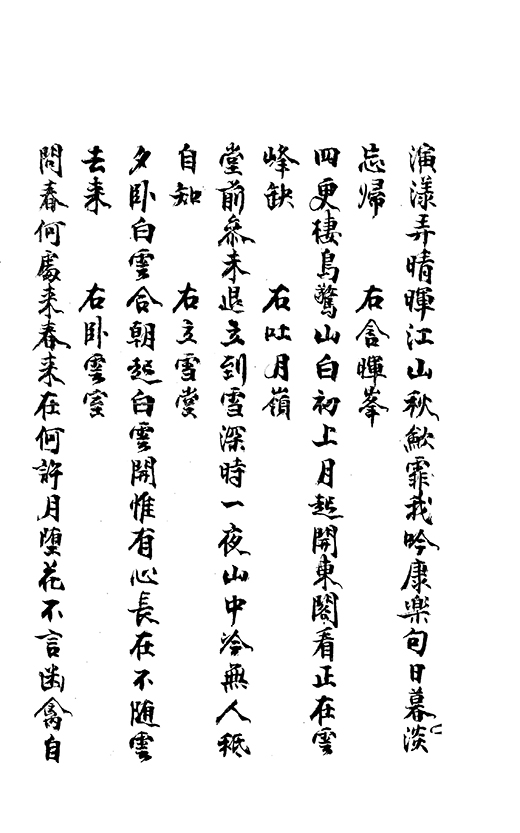 演漾弄晴暉江山秋歛霏我吟康樂句日暮淡
忘歸　右含暉峯
四更棲鳥驚山白初上月起開東閣看正在雲
峰缺　右吐月嶺
堂前參未退立到雪深時一夜山中冷無人秪
自知　右立雪堂
夕卧白雲合朝起白雲開惟有心長在不随雲
去来　右卧雲室
問春何處来春来在何許月堕花不言幽禽自